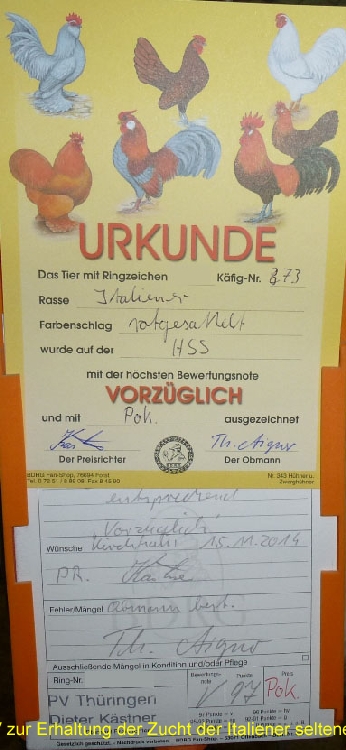 URKUNDE
Das Tier mit Ringzeichen Käfig-Nr. 873
Rasse Italiener
Farbenschlag rotgesattelt
wurde auf der HSS
mit der höchsten Bewertungsnote
VORZÜGLICH
und mit Pok. ausgezeichnet
Der Preisrichter Der Obmann
entsprechend
Vorzüglich
Wünsche 15.11.2014
PR.
Fehler/Mängel Obmann best.
Th.
Ausschließende Mängel in Kondition und/oder Pflege
Ring-Nr. Bewertungsnote Preis
V 97 Pok.
PV Thüringen
Dieter Kästner
V zur Erhaltung der Zucht der Italiener seltene